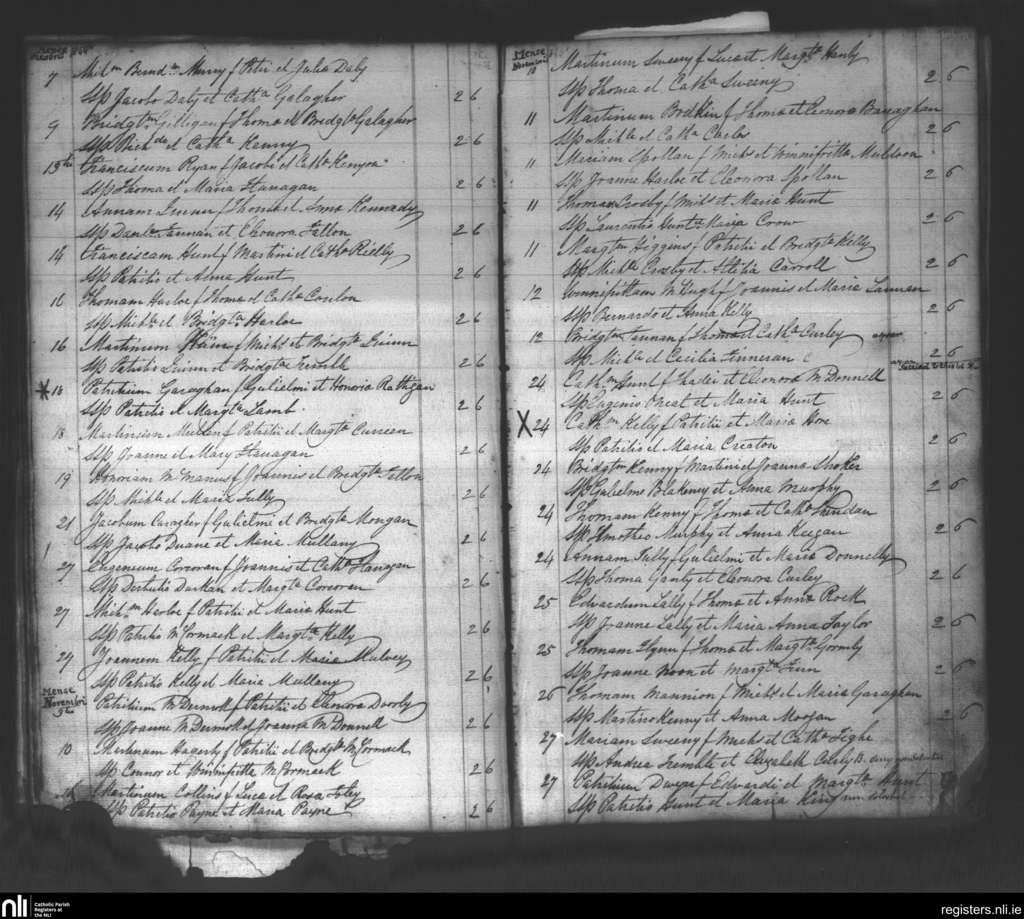 Mense
Octobris
7 Mich.m Bernd.m Henry f Petri et Julia Daly
Ssp Jacobo Daly et Cath.a Galagher 2 6
9 Bridg.tm Gilligan f Thoma et Bridg.ta Galagher
Ssp Rich.do et Cath.a Kenny 2 6
13th Franciscum Ryan f Jacobi et Cath.a Kenyon
Ssp Thoma et Maria Flanagan 2 6
14 Annam f Thoma et Anna Kennedy
Ssp Dan.le Fannan et Eleonora Fallon 2 6
14 Franciscam Hunt f Martini et Cath.a Reilly
Ssp Patritio et Anna Hunt 2 6
16 Thomam Harloe f Thoma et Cath.a Conlon
Ssp Mich.le et Bridg.ta Harloe 2 6
16 Martinum f Mich.s et Bridg.ta Quinn
Ssp Patritio Quinn et Bridg.ta Tremble 2 6
18 Patritium Garaghan f Gulielmi et Honoria Rattigan
Ssp Patritio et Marg.ta Lamb 2 6
18 Martinum Mullen f Patritii et Marg.ta Curran
Ssp Joanne et Mary Flanagan 2 6
19 Honoriam McManus f Joannis et Bridg.ta Fallon
Ssp Mich.le et Maria Tully 2 6
21 Jacobum Caragher f Gulielmi et Bridg.ta Mongan
Ssp Jacobo Duane et Maria Mullany 2 6
27 Eugeneum Corcoran f Joannis et Cath.a Flanagan
Ssp et Marg.ta Corcoran 2 6
27 Mich.m Harloe f Patritii et Maria Hunt
Ssp Patritio McCormack et Marg.ta Kelly 2 6
29 Joannem Kelly f Patritii et Maria Mulvey
Ssp Patritio Kelly et Maria Mullany 2 6
Mense
Novembris
9th Patritium McDermott f Patritii et Eleonora Doorly
Ssp Joanne McDermott et Joanna McDonnell 2 6
10 Hagerty f Patritii et Bridg.ta McCormack
Ssp Connor et Winnifritta McCormack 2 6
Martinum Collins f Luca et Rosa Foley
Ssp Patritio Payne et Maria Payne 2 6
Mense
Novembris
10 Martinum Sweeny f Luca et Marg.ta Hanly
Ssp Thoma et Cath.a Sweeny 2 6
11 Martinum Bodkin f Thoma et Eleonora Banaghan
Ssp Mich.le et Cath.a Carlos 2 6
11 Mariam Spollan f Mich.s et Winnifritta Muldoon
Ssp Joanne Harloe et Eleonora Spollan 2 6
11 Thomam Crosby f Mich.s et Maria Hunt
Ssp Laurentio Hunt et Maria Crow 2 6
11 Marg.tm Higgins f Patritii et Bridg.ta Kelly
Ssp Mich.le Crosby et Carroll 2 6
12 Winnifrittam McHugh f Joannis et Maria Lannan
Ssp Bernardo et Anna Kelly 2 6
12 Bridg.tm Fannan f Thoma et Cath.a Curley
Ssp Mich.le et Cecilia Finneran 2 6
24 Cath.m Hunt f et Eleonora McDonnell
Ssp Eugenio et Maria Hunt 2 6
X 24 Cath.m Kelly f Patritii et Maria Hoe
Ssp Patritio et Maria Creaton 2 6
24 Bridg.tm Kenny f Martini et Joanna Shoker
Ssp Gulielmo Blakeney et Anna Murphy 2 6
24 Thomam Kenny f Thoma et Cath.a
Ssp Timotheo Murphy et Anna Keegan 2 6
24 Annam Tully f Gulielmi et Maria Donnelly
Ssp Thoma Ganly et Eleonora Curley 2 6
25 Edvardum Lally f Thoma et Anna Rock
Ssp Joanne Lally et Maria Anna Taylor 2 6
25 Thomam Flynn f Thoma et Marg.ta Gormly
Ssp Joanne Noon et Marg.ta Finn 2 6
26 Thomam Mannion f Mich.s et Maria Garaghan
Ssp Martino Kenny et Anna Morgan 2 6
27 Mariam Sweeny f Mich.s et Cath.a Tighe
Ssp Andrea Tremble et Elizabeth
27 Patritium Dwyer f Edvardi et Marg.ta Hunt
Ssp Patritio Hunt et Maria King
nli Catholic Parish
Registers at
the NLI
registers.nli.ie